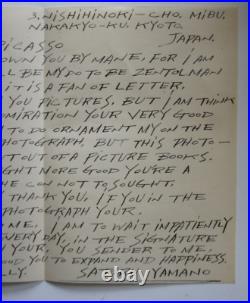 3. NISHIHINOKI-CHO, MIBU,
NAKAKYO-KU, KYOTO
JAPAN.
PICASSO
OWN YOU BY MANE, FOR I AM
LL BE MY DO TO BE ZENTOLMAN
IT IS A FAN OF LETTER.
YOU PICTURES, BUT I AM THINK
MIRATION YOUR VERY GOOD
TO DO ORNAMENT MY ON THE
HOTOGRAPH. BUT THIS PHOTO—
T OUT OF A PICTURE BOOKS.
GHT NORE GOOD YOU'RE A
HE CON NOT TO SOUGHT.
THANK YOU, IF YOU IN THE
HOTOGRAPH YOUR.
ME, I AM TO WAIT INPATIENTLY
EVERY DAY, IN THE SIGNATURE
YOUR, YOU SENDER TO ME.
OD YOU TO EXPAND AND HAPPINESS.
LLY. YAMANO